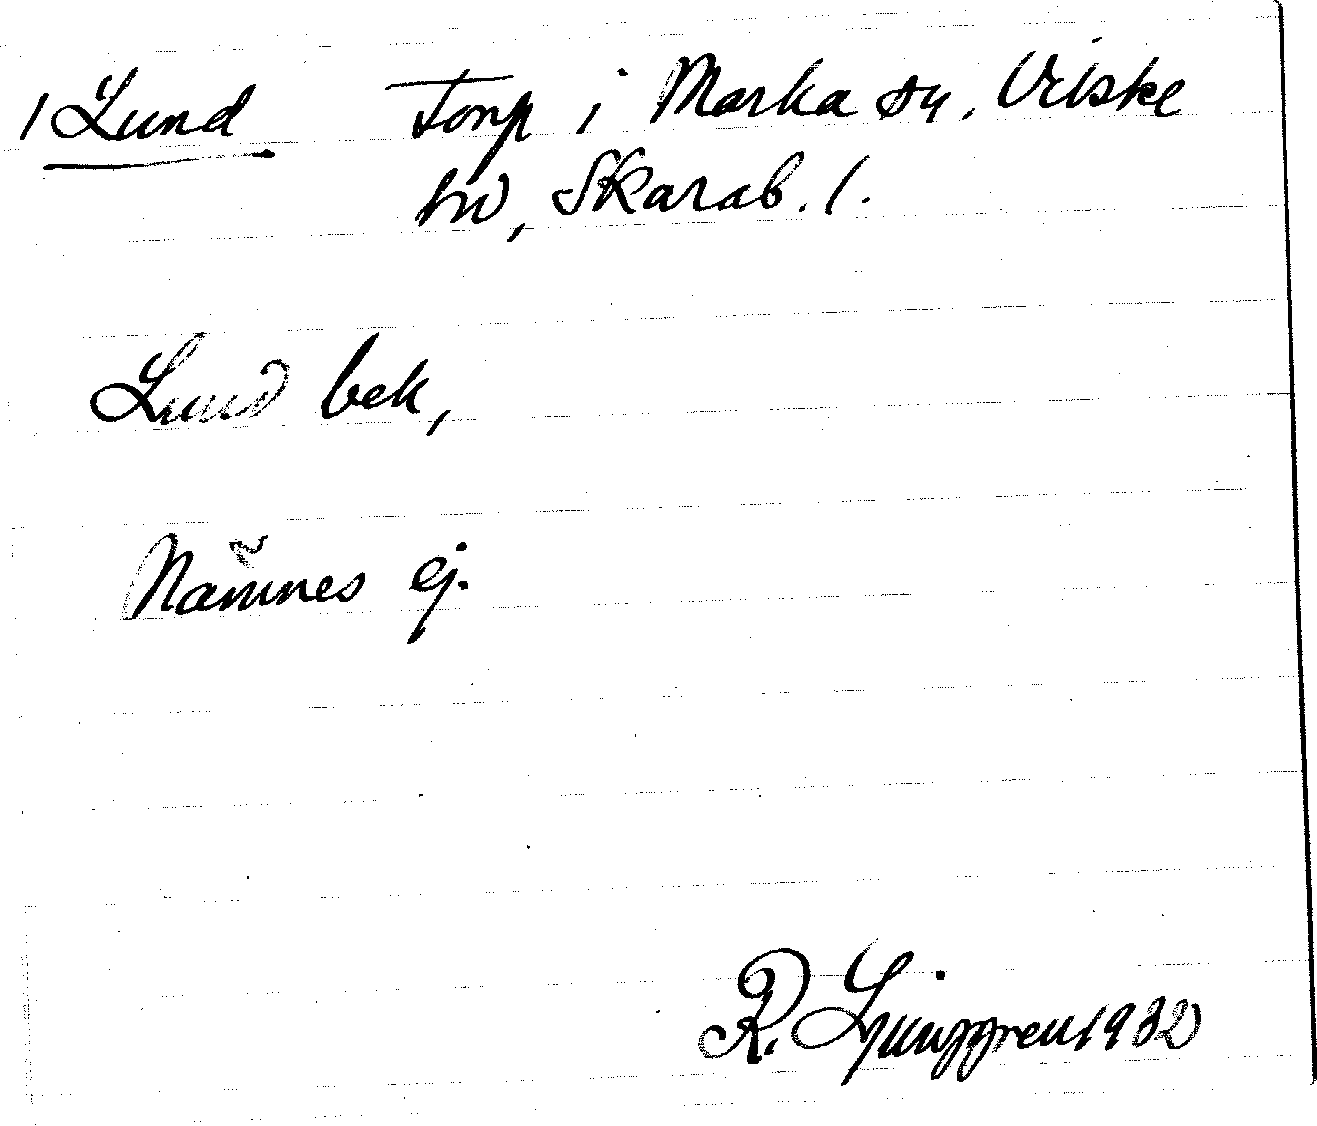 1 Lund Torp i Marka sn, Vilske
hd, Skarab. l.
Lund bek,
Nämnes ej.
R. Ljunggren 1932